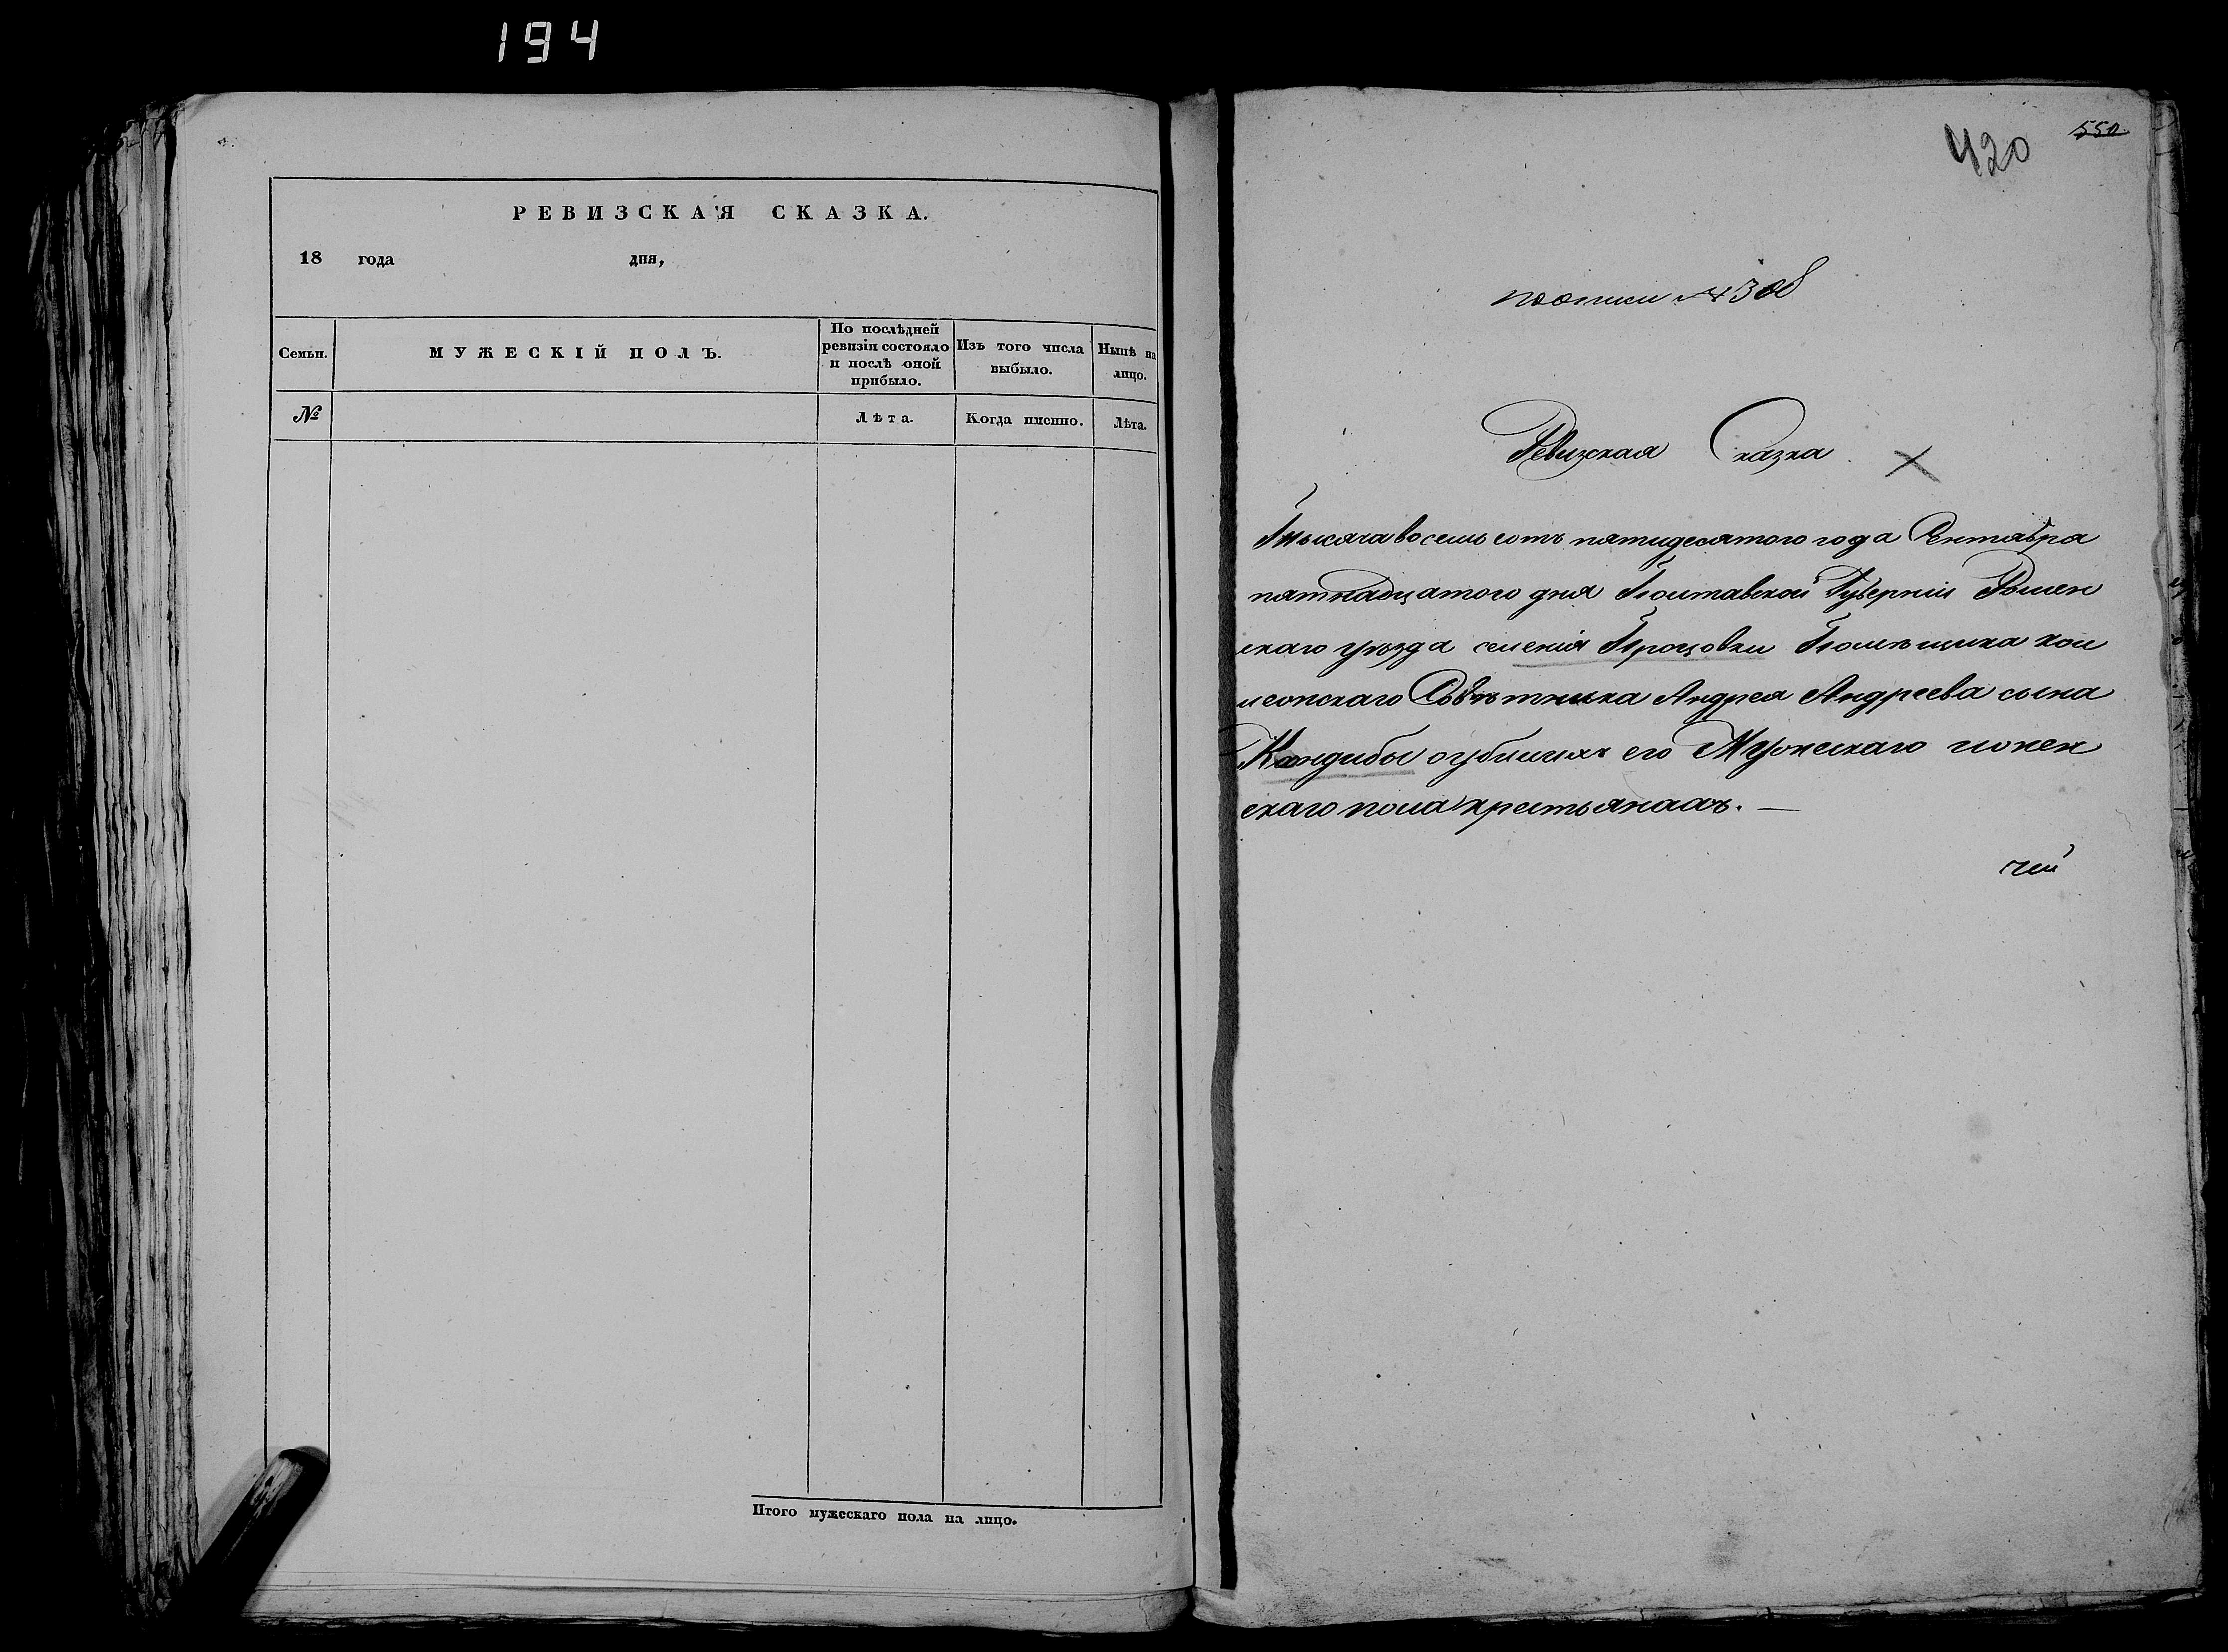 194
РЕВИЗСКАЯ СКАЗКА.
18 года дня,
Семьи.
МУЖЕСКІЙ ПОЛЪ.
По послѣдней
ревизіи состояло
и послѣ оной
прибыло.
Изъ того числа
выбыло.
Нынѣ на
лицо.
№
Лѣта.
Когда именно.
Лѣта.
Итого мужескаго пола на лицо.
420
550
по описи № 308
Ревизская Сказка
Тысяча восемь сотъ пятидесятого года Сентября
пятнадцатого дня Полтавской Губерніи Ромен
скаго уѣзда селенія Процовки Помѣщика кол
лежскаго Совѣтника Андрея Андреева сына
Кандибы о убылихъ его Мужескаго и женс
скаго пола крестьянахъ. —
чей